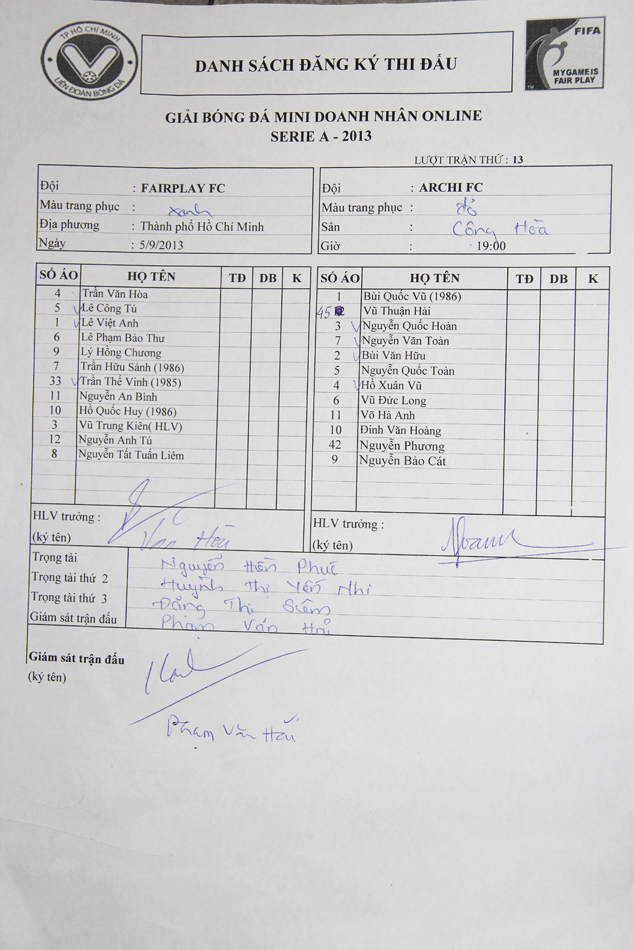 TP HỒ CHÍ MINH
LIÊN ĐOÀN BÓNG ĐÁ
DANH SÁCH ĐĂNG KÝ THI ĐẤU
FIFA
MY GAME IS
FAIR PLAY
GIẢI BÓNG ĐÁ MINI DOANH NHÂN ONLINE
SERIE A - 2013
LƯỢT TRẬN THỨ : 13
Đội : FAIRPLAY FC
Màu trang phục : xanh
Địa phương : Thành phố Hồ Chí Minh
Ngày : 5/9/2013
Đội : ARCHI FC
Màu trang phục : đỏ
Sân : Cộng Hòa
Giờ : 19:00
SỐ ÁO HỌ TÊN TĐ DB K
4 Trần Văn Hòa
5 Lê Công Tú
1 Lê Việt Anh
6 Lê Phạm Bảo Thư
9 Lý Hồng Chương
7 Trần Hữu Sánh (1986)
33 Trần Thế Vinh (1985)
11 Nguyễn An Bình
10 Hồ Quốc Huy (1986)
3 Vũ Trung Kiên( HLV)
12 Nguyễn Anh Tú
8 Nguyễn Tất Tuấn Liêm
SỐ ÁO HỌ TÊN TĐ DB K
1 Bùi Quốc Vũ (1986)
45 Vũ Thuận Hải
3 Nguyễn Quốc Hoàn
7 Nguyễn Văn Toàn
2 Bùi Văn Hữu
5 Nguyễn Quốc Toàn
4 Hồ Xuân Vũ
6 Vũ Đức Long
11 Võ Hà Anh
10 Đinh Văn Hoàng
42 Nguyễn Phương
9 Nguyễn Bảo Cát
HLV trưởng :
(ký tên) Văn Hòa
HLV trưởng :
(ký tên)
Trọng tài Nguyễn Hồn Phúc
Trọng tài thứ 2 Huỳnh Thị Yến Nhi
Trọng tài thứ 3 Đặng Thị Siêm
Giám sát trận đấu Phạm Văn Hải
Giám sát trận đấu
(ký tên)
Phạm Văn Hải